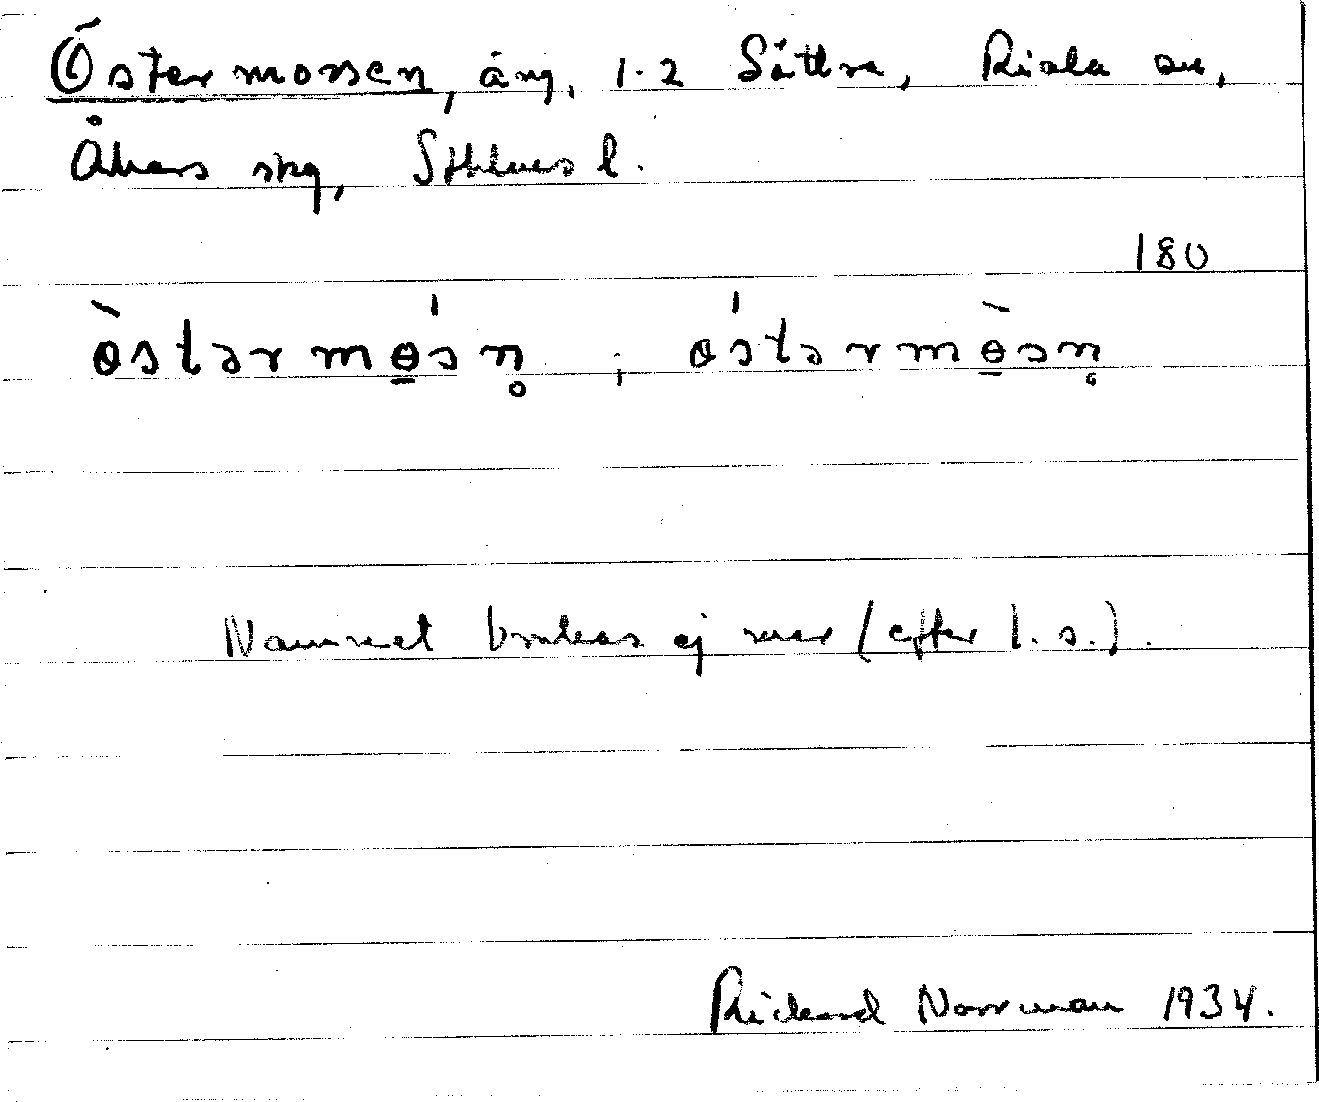 Östermossen, äng, 1-2 Sättra, Riala sn,
Åkers skg, Sthlms l.
180
ö̀stərmɵ̠́sn̥ ; ö́stərmɵ̠̀sn̥
Namnet brukas ej mer (efter l. s.).
Rickard Norrman 1934.